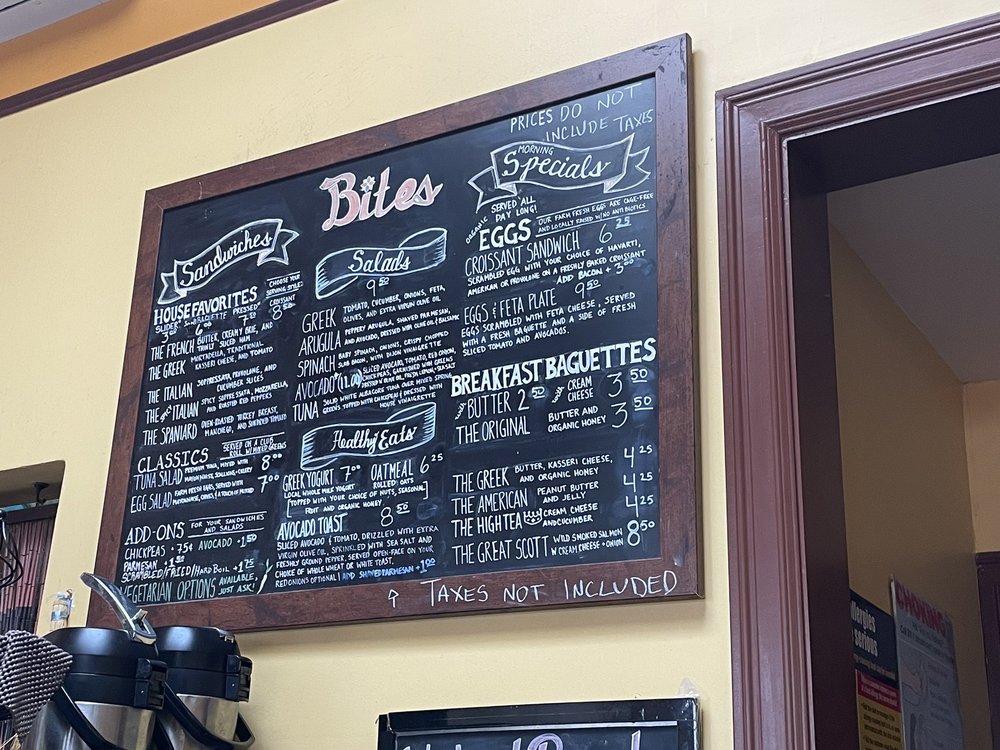 PRICES DO NOT
INCLUDE TAXES
Bites
Sandwiches
HOUSE FAVORITES
CHOOSE YOUR
SERVING STYLE:
SLIDER BAGUETTE PRESSED CROISSANT
3 50 6 00 7 50 8 50
THE FRENCH BUTTER, CREAMY BRIE, AND
THINLY SLICED HAM
THE GREEK MORTADELLA, TRADITIONAL
KASSERI CHEESE, AND TOMATO
THE ITALIAN SOPRESSATA, PROVOLONE, AND
CUCUMBER SLICES
THE ITALIAN SPICY SOPPRESATA, MOZZARELLA,
AND ROASTED RED PEPPERS
THE SPANIARD OVEN-ROASTED TURKEY BREAST,
MANCHEGO, AND SUNDRIED TOMATO
CLASSICS SERVED ON A CLUB
ROLL W/ MIXED GREENS
TUNA SALAD PREMIUM TUNA, MIXED WITH
MAYONNAISE, SCALLIONS, + CELERY 8 00
EGG SALAD FARM FRESH EGGS, SERVED WITH
MAYONNAISE, CHIVES, & A TOUCH OF MUSTARD 7 00
ADD-ONS FOR YOUR SANDWICHES
AND SALADS
CHICKPEAS +.75¢ AVOCADO +1 50
PARMESAN +1 50
SCRAMBLED/FRIED/HARD BOIL +1 75
VEGETARIAN OPTIONS AVAILABLE,
JUST ASK!
Salads
9 50
GREEK TOMATO, CUCUMBER, ONIONS, FETA,
OLIVES, AND EXTRA VIRGIN OLIVE OIL
ARUGULA PEPPERY ARUGULA, SHAVED PARMESAN,
AND AVOCADO, DRESSED WITH OLIVE OIL & BALSAMIC
SPINACH BABY SPINACH, ONIONS, CRISPY CHOPPED
SLAB BACON, WITH DIJON VINAIGRETTE
AVOCADO (11.00) SLICED AVOCADO, TOMATO, RED ONION,
CHICKPEAS, GARNISHED W/ GREENS
DRESSED W/ OLIVE OIL, FRESH LEMON + SEA SALT
TUNA SOLID WHITE ALBACORE TUNA OVER MIXED SPRING
GREENS TOPPED WITH CHICKPEAS & DRESSED WITH
HOUSE VINAIGRETTE
Healthy Eats
GREEK YOGURT 7 00 OATMEAL 6 25
LOCAL WHOLE MILK YOGURT ROLLED OATS
TOPPED WITH YOUR CHOICE OF NUTS, SEASONAL
FRUIT AND ORGANIC HONEY
AVOCADO TOAST 8 50
SLICED AVOCADO & TOMATO, DRIZZLED WITH EXTRA
VIRGIN OLIVE OIL, SPRINKLED WITH SEA SALT AND
FRESHLY GROUND PEPPER. SERVED OPEN-FACE ON YOUR
CHOICE OF WHOLE WHEAT OR WHITE TOAST.
RED ONIONS OPTIONAL | ADD SHAVED PARMESAN +1 00
MORNING
Specials
SERVED ALL
DAY LONG!
ORGANIC
EGGS OUR FARM FRESH EGGS ARE CAGE-FREE
AND LOCALLY RAISED W/ NO ANTIBIOTICS
CROISSANT SANDWICH 6 25
SCRAMBLED EGG WITH YOUR CHOICE OF HAVARTI,
AMERICAN OR PROVOLONE ON A FRESHLY BAKED CROISSANT
ADD BACON + 3 00
EGGS & FETA PLATE 9 50
EGGS SCRAMBLED WITH FETA CHEESE, SERVED
WITH A FRESH BAGUETTE AND A SIDE OF FRESH
SLICED TOMATO AND AVOCADOS.
BREAKFAST BAGUETTES
BUTTER 2 50 CREAM
CHEESE 3 50
THE ORIGINAL BUTTER AND
ORGANIC HONEY 3 50
THE GREEK BUTTER, KASSERI CHEESE,
AND ORGANIC HONEY 4 25
THE AMERICAN PEANUT BUTTER
AND JELLY 4 25
THE HIGH TEA CREAM CHEESE
AND CUCUMBER 4 25
THE GREAT SCOTT WILD SMOKED SALMON
W CREAM CHEESE + ONION 8 50
↑ TAXES NOT INCLUDED
CHOKING